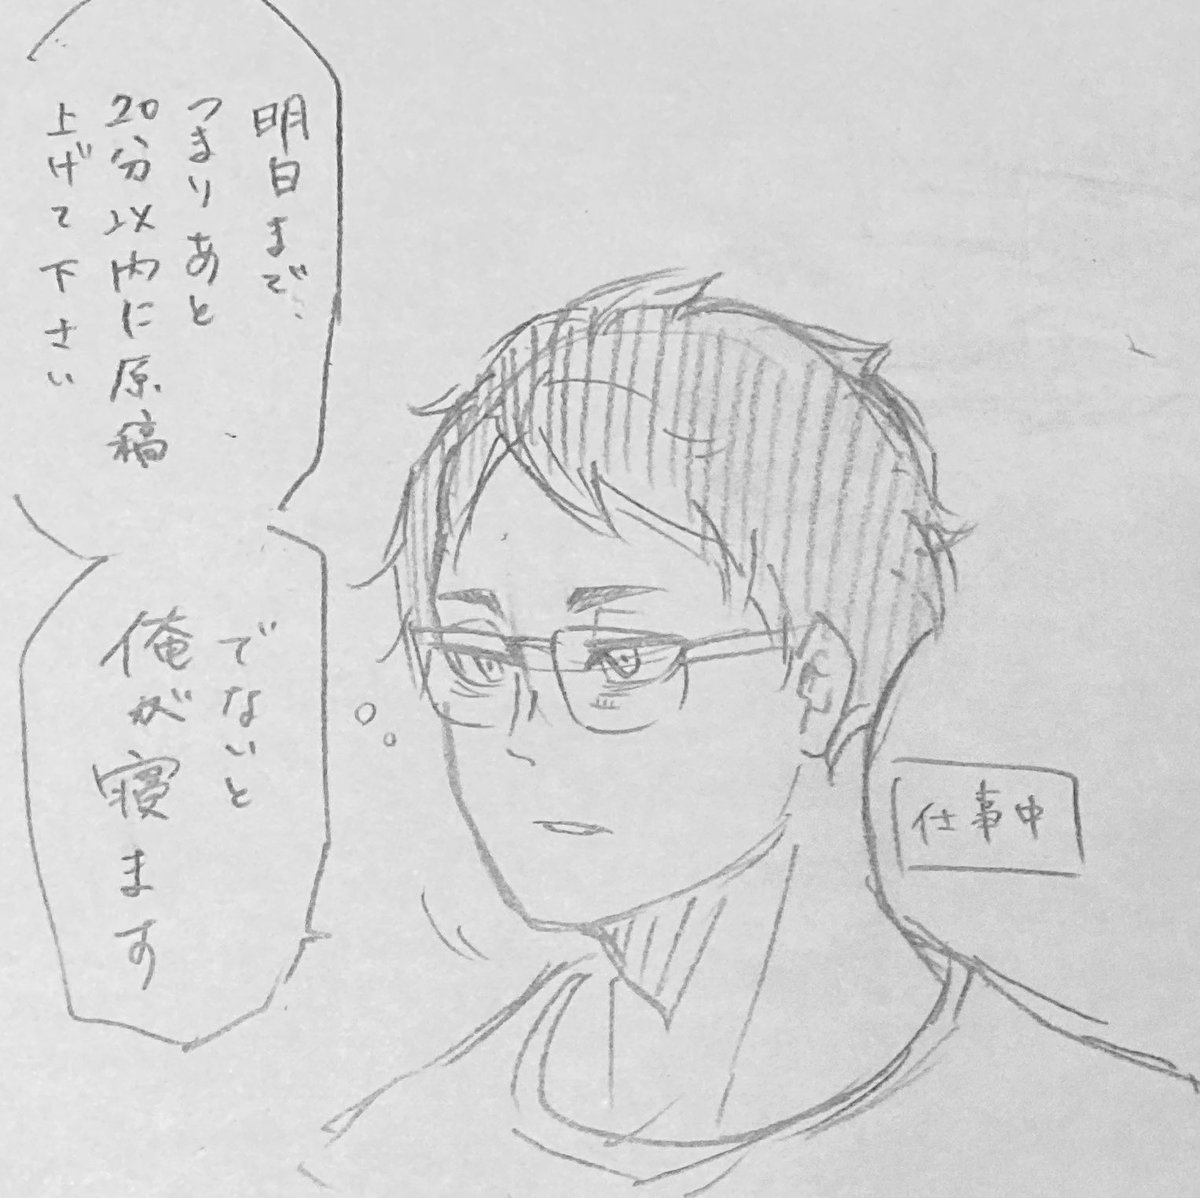 明日まで
つまりあと
20分以内に原稿
上げて下さい
でないと
俺が寝ます
仕事中